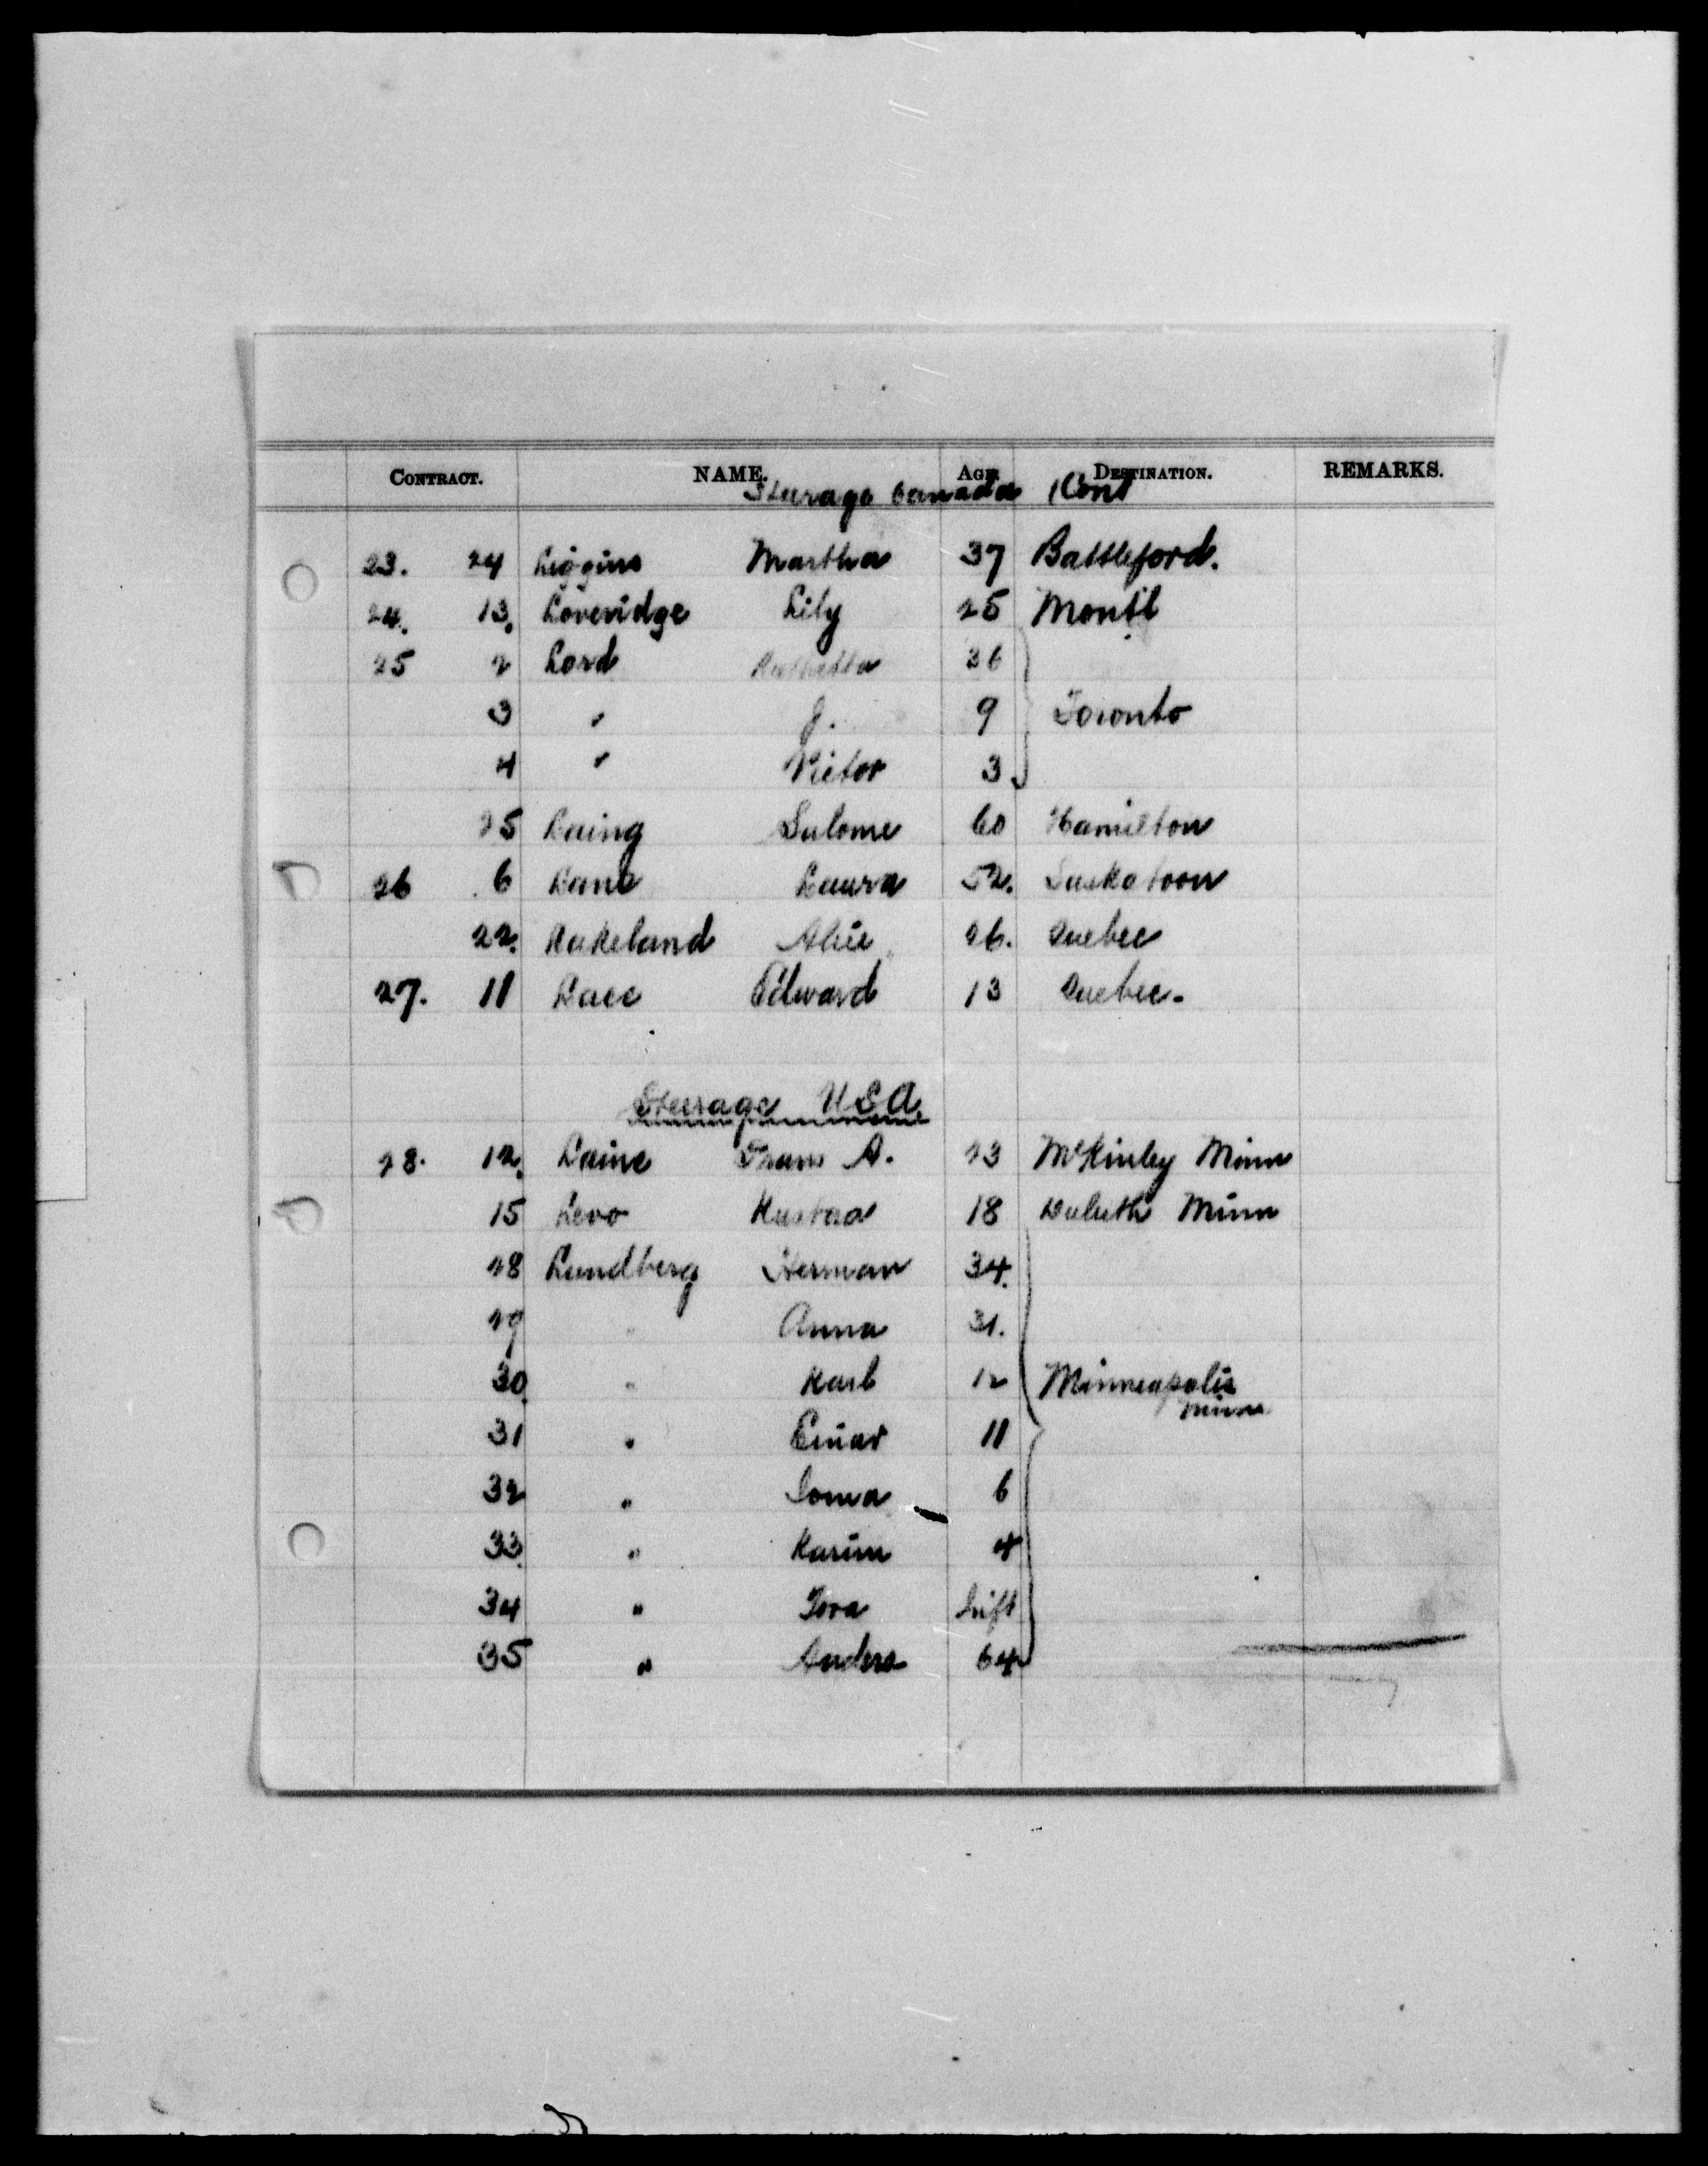 CONTRACT. NAME. AGE DESTINATION. REMARKS.
Steerage Canada (Cont
23. 24 Liggins Martha 37 Battleford.
24. 13. Loveridge Lily 25 Montl
25 2 Lord 36
3 " J. 9 Toronto
4 " Victor 3
25 Laing Salome 60 Hamilton
26 6 Lane Laura 52. Saskatoon
22. Lakeland Alice 26. Quebec
27. 11 Lace Edward 13 Quebec.
Steerage USA
28. 12. Laine Frans A. 23 McKinley Minn
15 Levo Kustaa 18 Duluth Minn
28 Lundberg Herman 34.
29 " Anna 31.
30. " Karl 12 Minneapolis
Minn
31 " Einar 11
32 " 6
33. " Karin 4
34 " Tora Inft
35 " Anders 64